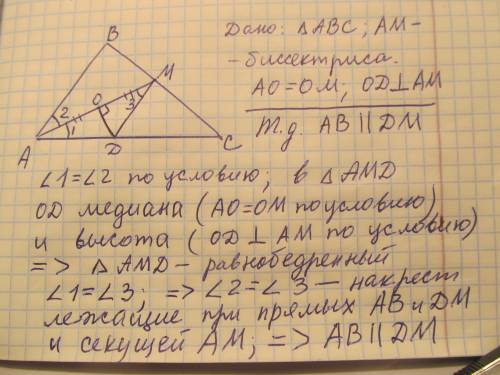 Дано: △ABC; AM-
-биссектриса.
AO=OM; OD⊥AM
Т.д. AB || DM
B
M
2
O
3
1
A
D
C
∠1=∠2 по условию; в △AMD
OD медиана (AO=OM по условию)
и высота (OD⊥AM по условию)
=> △AMD - равнобедренный
∠1=∠3; => ∠2=∠3 — накрест
лежащие при прямых AB и DM
и секущей AM; => AB || DM